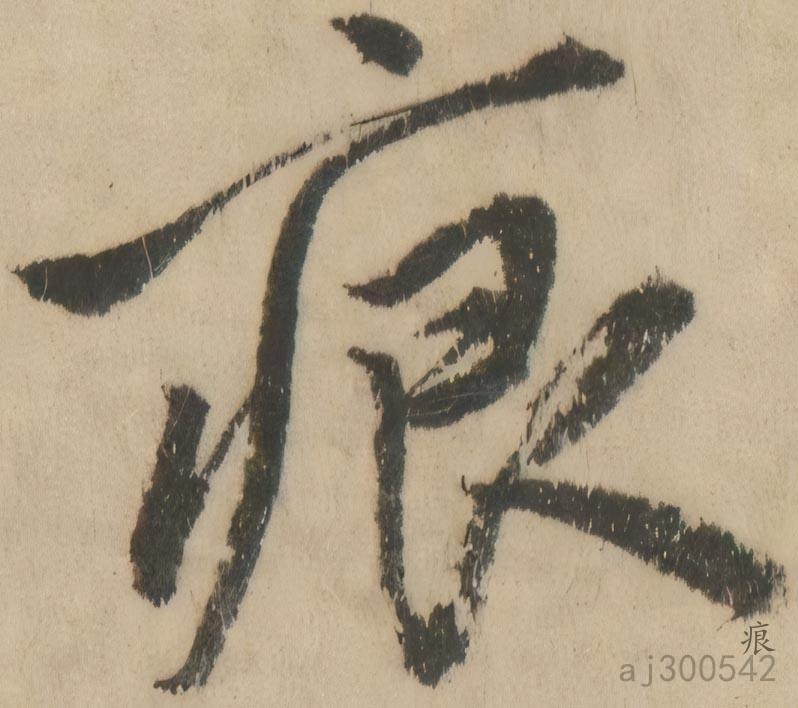 痕
痕
aj300542